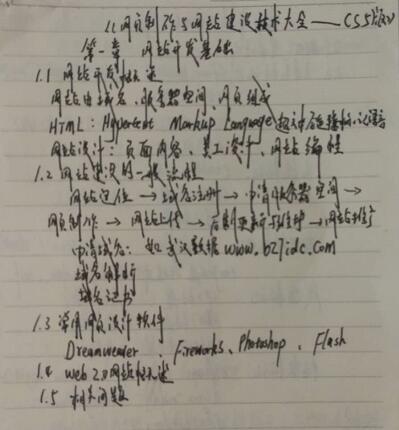 《网页制作与网站建设技术大全——CS5版》
第一章 网站开发基础
1.1 网站开发概述
网站由域名、服务器空间、网页组成
HTML:Hypertext Markup Language 超文本标记语言
网站设计:页面内容、美工设计、网站编程
1.2 网站建设的一般流程
网站定位→域名注册→申请服务器空间→
网页制作→网站上传→后期更新与维护→网站推广
申请域名:如武汉数据 www.b27idc.com
域名解析
域名证书
1.3 常用网页设计软件
Dreamweader、Fireworks、Photoshop、Flash
1.4 web 2.0网站概述
1.5 相关问题